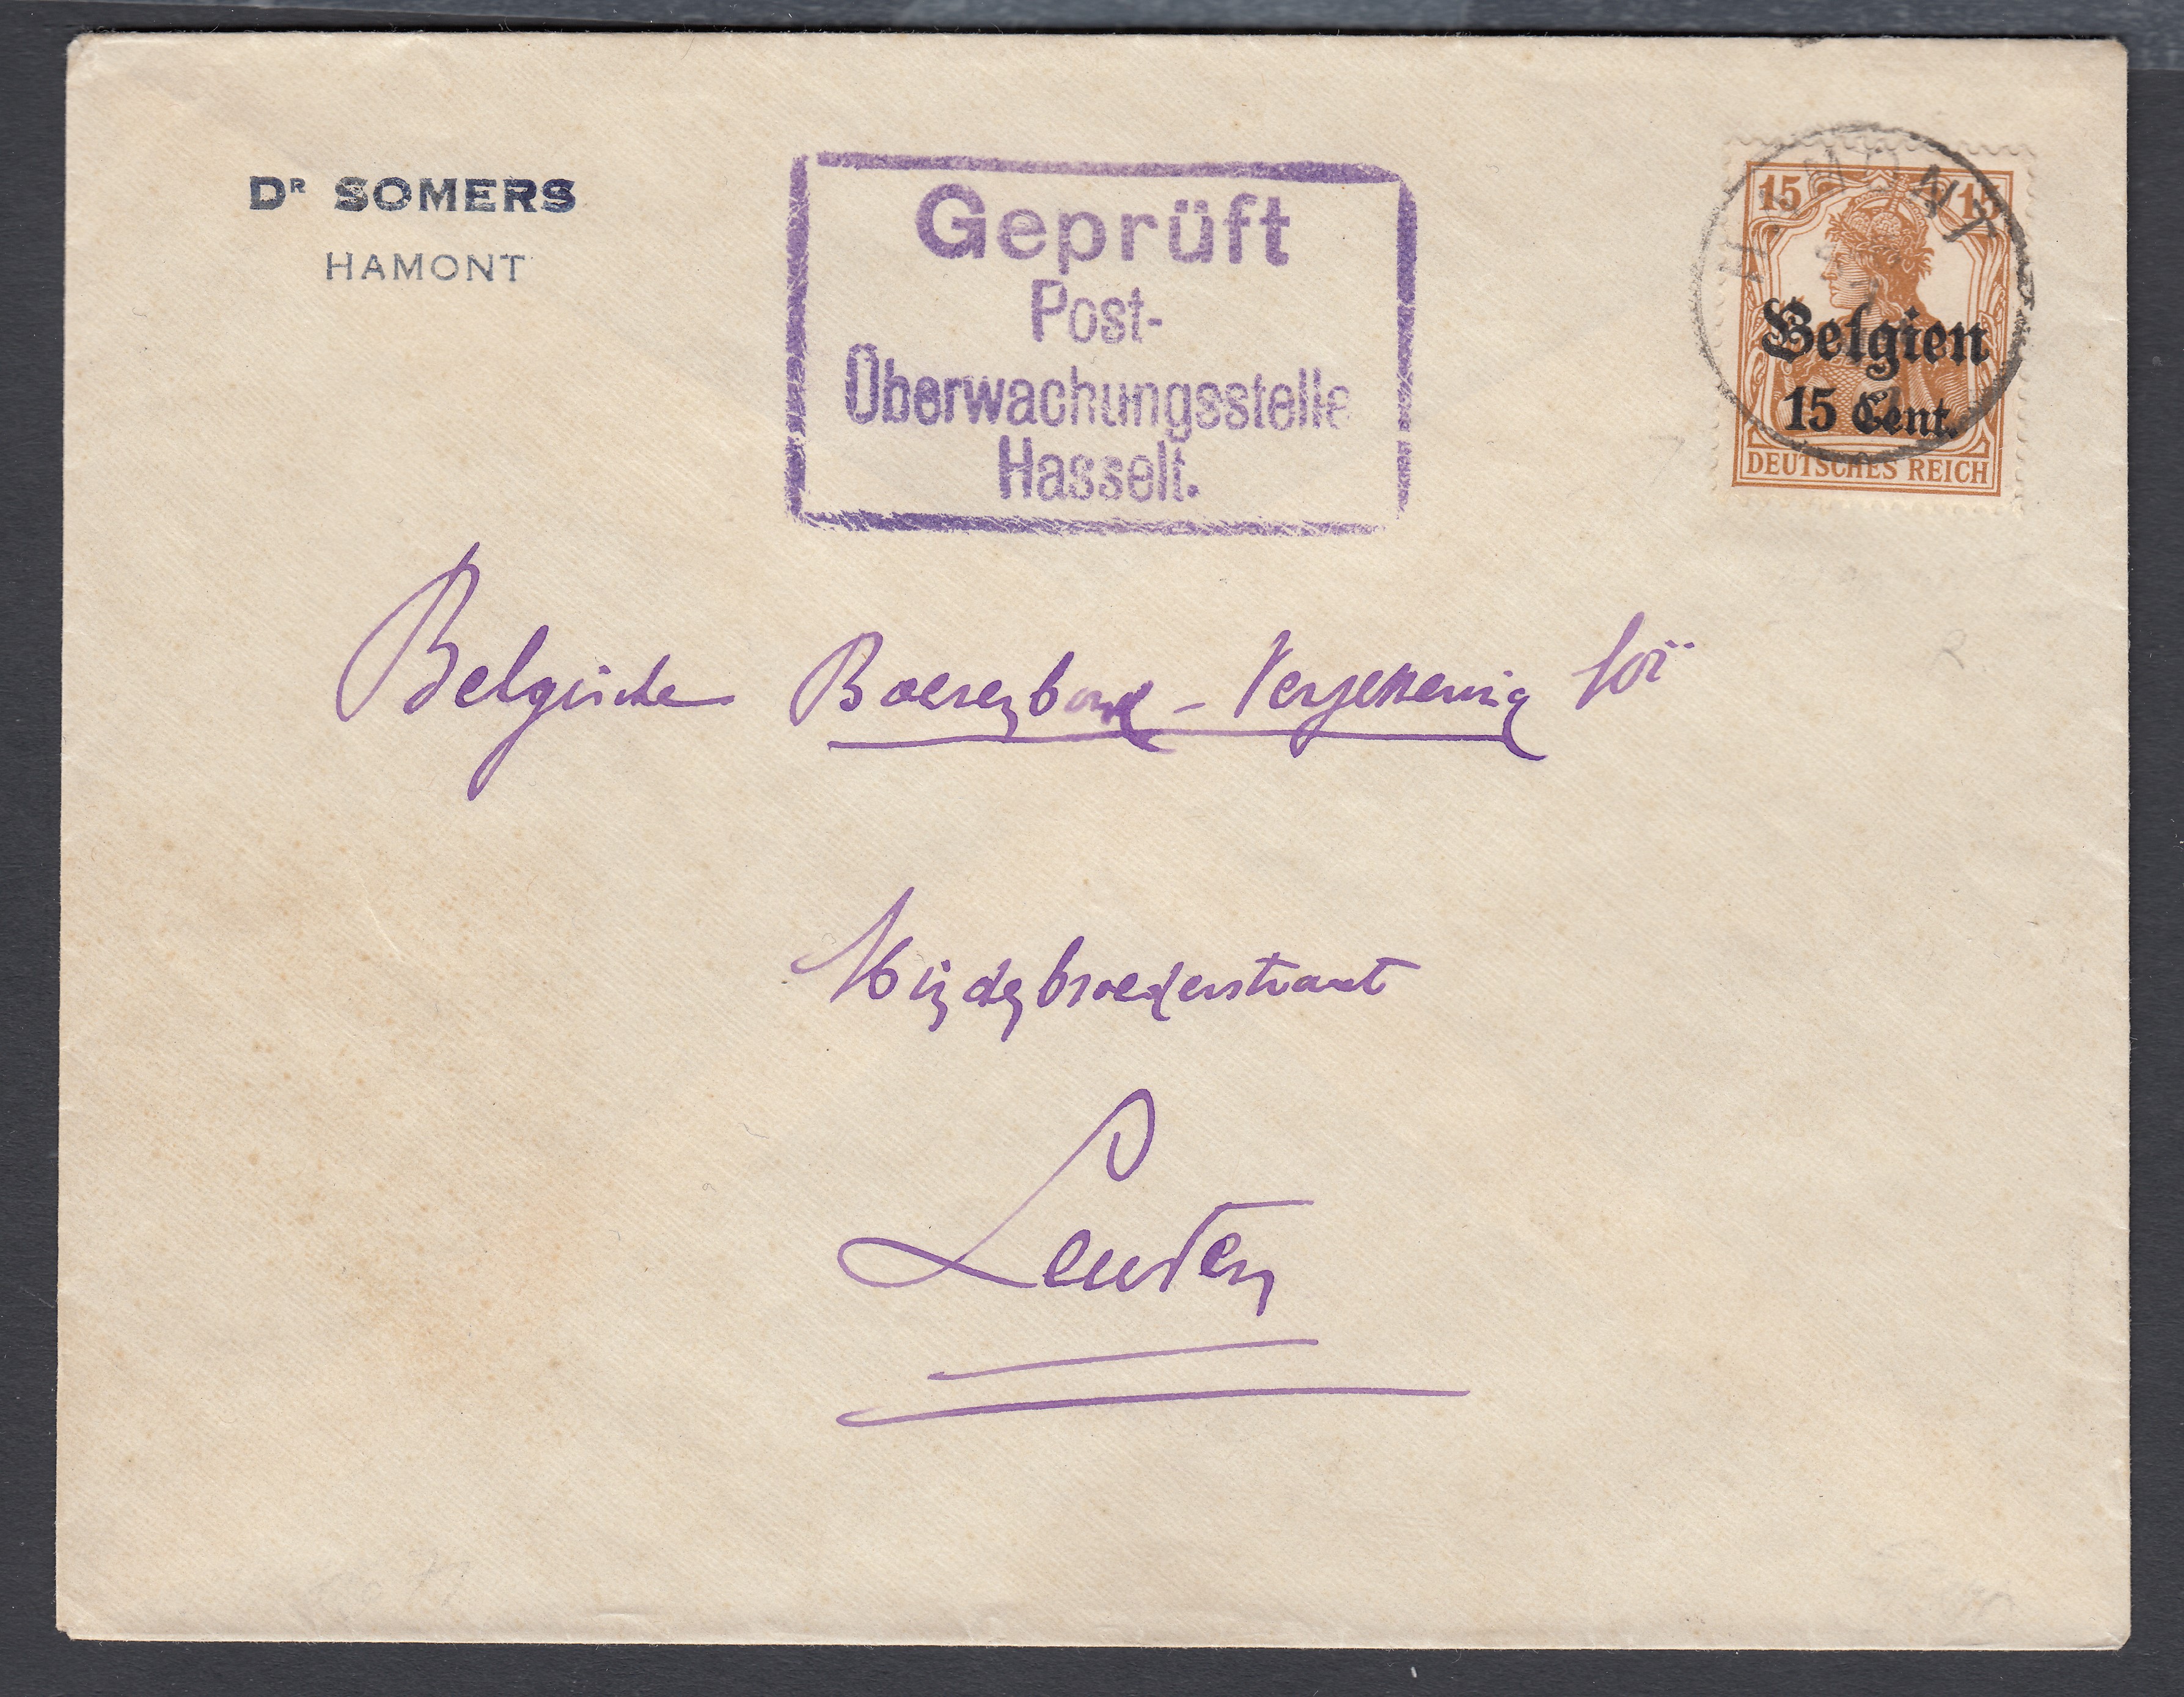 Dʳ SOMERS
HAMONT
Geprüft
Post-
Überwachungsstelle
Hasselt.
HAMONT
15 15
Belgien
15 Cent.
DEUTSCHES REICH
Belgische Boerenbond - Verzekering
Mindebroederstraat
Leuven